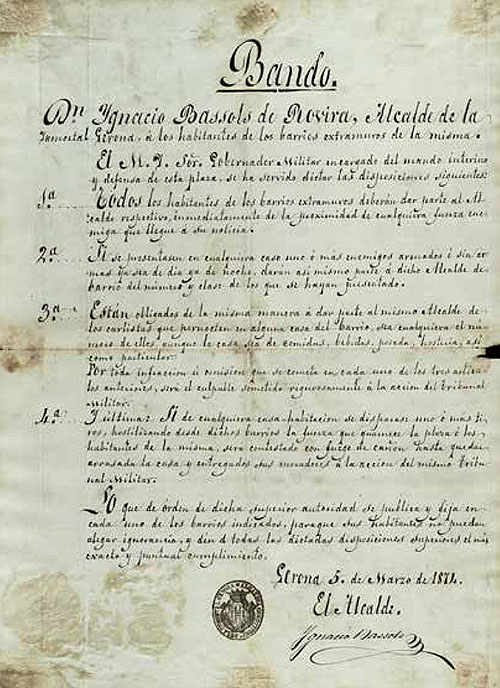 Bando.
Dn Ygnacio Bassols de Rovira, Alcalde de la
Inmortal Gerona, á los habitantes de los barrios extramuros de la misma.
El M. Y. Sór. Gobernador Militar encargado del mando interino
y defensa de esta plaza, se ha servido dictar las disposiciones siguientes:
1ª.... Todos los habitantes de los barrios extramuros deberán dar parte al Al-
calde respectivo, inmediatamente de la proximidad de cualquiera fuerza ene-
miga que llegue á su noticia.
2ª.... Si se presentasen en cualquiera caso uno ó más enemigos armados ó sin ar-
mas ya sea de dia ya de noche, darán asi mismo parte á dicho Alcalde de
barrio del número y clase de los que se hayan presentado.
3ª.... Están obligados de la misma manera á dar parte al mismo Alcalde de
los carlistas que pernocten en alguna casa del barrio, sea cualquiera el nú-
mero de ellos, aunque la casa sea de comidas, bebidas, posada, hosteria, asi
como particular.
Por toda infraccion ú omision que se cometa en cada uno de los tres articu-
los anteriores, será el culpable sometido rigurosamente á la accion del tribunal
Militar.
4ª.... Y última: Si de cualquiera casa-habitacion se disparase uno ó más ti-
ros, hostilizando desde dichos barrios la fuerza que guarnece la plaza ó los
habitantes de la misma, será contestado con fuego de cañon hasta quedar
arrasada la casa y entregados sus moradores á la accion del mismo tribu-
nal Militar.
Lo que de órden de dicha superior autoridad se publica y fija en
cada uno de los barrios indicados, para que sus habitantes no puedan
alegar ignorancia, y den á todas las dictadas disposiciones superiores el más
exacto y puntual cumplimiento.
Gerona 5 de Marzo de 1874.
El Alcalde.
Ygnacio Bassols